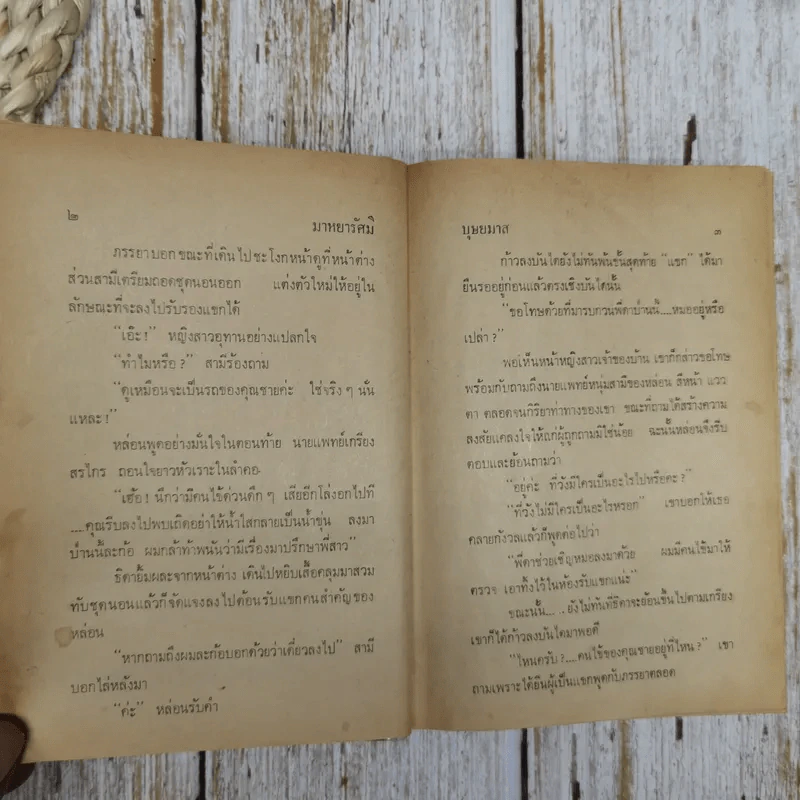 ๒
มาหยารัศมิ์
ภรรยาบอกขณะที่เดินไปชะโงกหน้าดูที่หน้าต่าง
ส่วนสามีเตรียมถอดชุดนอนออก แต่งตัวใหม่ให้อยู่ใน
ลักษณะที่จะลงไปรับรองแขกได้
“เอ๊ะ!” หญิงสาวอุทานอย่างแปลกใจ
“ทำไมหรือ?” สามีร้องถาม
“ดูเหมือนจะเป็นรถของคุณชายค่ะ ใช่จริงๆ นั่น
แหละ!”
หล่อนพูดอย่างมั่นใจในตอนท้าย นายแพทย์เกรียง
สรไกร ถอนใจยาวหัวเราะในลำคอ
“เฮ้อ! นึกว่ามีคนไข้ด่วนดึกๆ เสียอีกโล่งอกไปที
....คุณรีบลงไปพบเถิดอย่าให้น้ำใสกลายเป็นน้ำขุ่น ลงมา
บ้านนี้ละก้อ ผมกล้าท้าพนันว่ามีเรื่องมาปรึกษาพี่สาว”
ธิดายิ้มผละจากหน้าต่าง เดินไปหยิบเสื้อคลุมมาสวม
ทับชุดนอนแล้วก็จัดแจงลงไปต้อนรับแขกคนสำคัญของ
หล่อน
“หากถามถึงผมละก้อบอกด้วยว่าเดี๋ยวลงไป” สามี
บอกไล่หลังมา
“ค่ะ” หล่อนรับคำ
บุษยมาส
๓
ก้าวลงบันไดยังไม่ทันพ้นขั้นสุดท้าย “แขก” ได้มา
ยืนรออยู่ก่อนแล้วตรงเชิงบันไดนั้น
“ขอโทษด้วยที่มารบกวนพี่ดาบ้านนี้....หมออยู่หรือ
เปล่า?”
พอเห็นหน้าหญิงสาวเจ้าของบ้าน เขาก็กล่าวขอโทษ
พร้อมกับถามถึงนายแพทย์หนุ่มสามีของหล่อน สีหน้า แวว
ตา ตลอดจนกิริยาท่าทางของเขา ขณะที่ถามได้สร้างความ
สงสัยแคลงใจให้แก่ผู้ถูกถามมิใช่น้อย ฉะนั้นหล่อนจึงรีบ
ตอบและย้อนถามว่า
“อยู่ค่ะ ที่วังมีใครเป็นอะไรไปหรือคะ?”
“ที่วังไม่มีใครเป็นอะไรหรอก” เขาบอกให้เธอ
คลายกังวลแล้วก็พูดต่อไปว่า
“พี่ดาช่วยเชิญหมอลงมาด้วย ผมมีคนไข้มาให้
ตรวจ เอาทิ้งไว้ในห้องรับแขกน่ะ”
ขณะนั้น.....ยังไม่ทันที่ธิดาจะย้อนขึ้นไปตามเกรียง
เขาก็ได้ก้าวลงบันไดมาพอดี
“ไหนครับ?....คนไข้ของคุณชายอยู่ที่ไหน?” เขา
ถามเพราะได้ยินผู้เป็นแขกพูดกับภรรยาตลอด